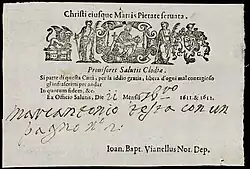 Christi eiusque Matris Pietate seruata.
Prouisores Salutis Clodiæ.
Si parte di questa Città, per la Iddio gratia, libera d'ogni mal contagioso
gl'infrascritti per andar
In quorum fidem, &c.
Ex Officio Salutis, Die ii Mensis 1611 & 1612.
Marcantonio Testa con un
pagno
Ioan. Bapt. Vianellus Not. Dep.